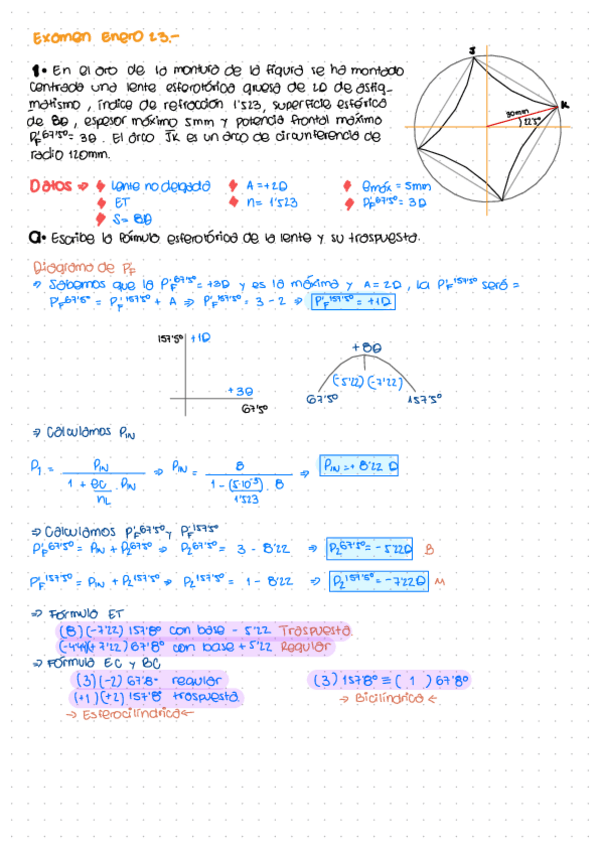 Examen Enero 23.-
1• En el aro de la montura de la figura se ha montado
centrada una lente esferotórica gruesa de 2D de astig-
matismo, índice de refracción 1'523, superficie esférica
de 8D, espesor máximo 5mm y potencia frontal máxima
P'F67'5º = 3D. El arco JK es un arco de circunferencia de
radio 120mm.
J
K
30mm
22'5º
Datos ⇒ Lente no delgada
A = +2D
emáx = 5mm
ET
n = 1'523
P'F67'5º = 3D
S = 8D
a• Escribe la fórmula esferotórica de la lente y su traspuesta.
Diagrama de P'F
⇒ Sabemos que la P'F67'5º = +3D y es la máxima y A = 2D, la P'F157'5º será =
P'F67'5º = P'F157'5º + A ⇒ P'F157'5º = 3 - 2 ⇒ P'F157'5º = +1D
157'5º +1D
+3D
67'5º
+8D
(-5'22) (-7'22)
67'5º 157'5º
⇒ Calculamos PIN
P1 = PIN / 1 + ec/nL · PIN ⇒ PIN = 8 / 1 - (5·10⁻³)/1'523 · 8 ⇒ PIN = + 8'22 D
⇒ Calculamos P'F67'5º y P'F157'5º
P'F67'5º = PIN + P267'5º ⇒ P267'5º = 3 - 8'22 ⇒ P267'5º = -5'22D B
P'F157'5º = PIN + P2157'5º ⇒ P2157'5º = 1 - 8'22 ⇒ P2157'5º = -7'22D M
⇒ Fórmula ET
(8) (-7'22) 157'8º con base - 5'22 Traspuesta
7'22) 67'8º con base + 5'22 Regular
⇒ Fórmula EC y BC
(3) (-2) 67'8º regular
(3) 157'8º ≡ ( 1 ) 67'8º
(+1) (+2) 157'8º traspuesta
→ Bicilíndrica ←
→ Esferocilíndrica ←